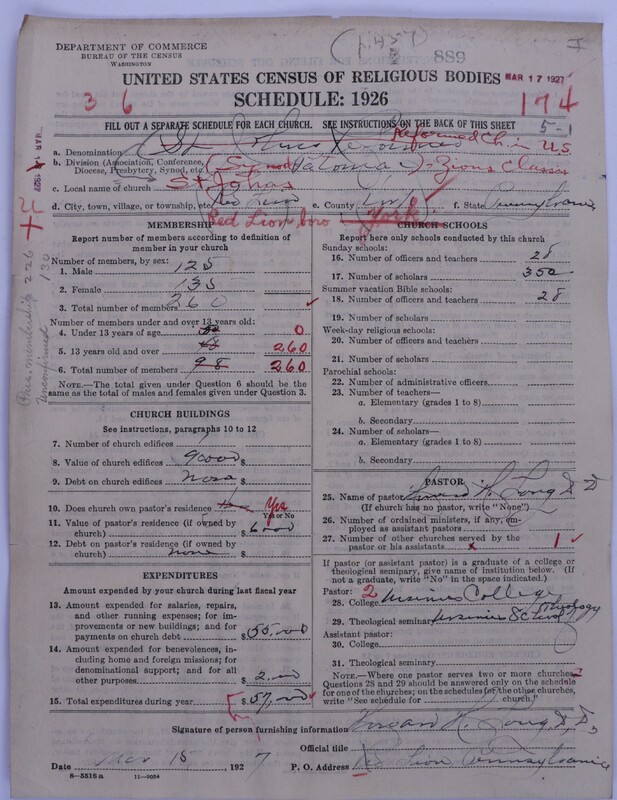 DEPARTMENT OF COMMERCE
BUREAU OF THE CENSUS
WASHINGTON
889
UNITED STATES CENSUS OF RELIGIOUS BODIES
MAR 17 1927
SCHEDULE: 1926
3 6
174
FILL OUT A SEPARATE SCHEDULE FOR EACH CHURCH. SEE INSTRUCTIONS ON THE BACK OF THIS SHEET
5-1
a. Denomination St. Johns Reformed Reformed Ch. in U S
b. Division (Association, Conference, Diocese, Presbytery, Synod, etc.) (Synod) Potomac - Zions Classis
c. Local name of church St Johns
d. City, town, village, or township, etc. Red Lion e. County York f. State Pennsylvania
Red Lion boro York
MEMBERSHIP
Report number of members according to definition of
member in your church
Number of members, by sex:
1. Male 125
2. Female 135
3. Total number of members 260
Number of members under and over 13 years old:
4. Under 13 years of age 0
5. 13 years old and over 260
6. Total number of members 98 260
NOTE.—The total given under Question 6 should be
same as the total of males and females given under Question 3.
CHURCH BUILDINGS
See instructions, paragraphs 10 to 12
7. Number of church edifices
8. Value of church edifices 90000 $
9. Debt on church edifices None $
10. Does church own pastor's residence Yes
Yes or No
11. Value of pastor's residence (if owned by
church) $ 6000
12. Debt on pastor's residence (if owned by
church) none $
EXPENDITURES
Amount expended by your church during last fiscal year
13. Amount expended for salaries, repairs,
and other running expenses; for im-
provements or new buildings; and for
payments on church debt $
14. Amount expended for benevolences, in-
cluding home and foreign missions; for
denominational support; and for all
other purposes $
15. Total expenditures during year $
CHURCH SCHOOLS
Report here only schools conducted by this church
Sunday schools:
16. Number of officers and teachers 28
17. Number of scholars 350
Summer vacation Bible schools:
18. Number of officers and teachers 28
19. Number of scholars
Week-day religious schools:
20. Number of officers and teachers
21. Number of scholars
Parochial schools:
22. Number of administrative officers
23. Number of teachers—
a. Elementary (grades 1 to 8)
b. Secondary
24. Number of scholars—
a. Elementary (grades 1 to 8)
b. Secondary
PASTOR
25. Name of pastor Long D D
(If church has no pastor, write "None")
26. Number of ordained ministers, if any, em-
ployed as assistant pastors
27. Number of other churches served by the
pastor or his assistants x 1
If pastor (or assistant pastor) is a graduate of a college or
theological seminary, give name of institution below. (If
not a graduate, write "No" in the space indicated.)
Pastor: 2
28. College Ursinus College
29. Theological seminary Ursinus School Theology
Assistant pastor:
30. College
31. Theological seminary
NOTE.—Where one pastor serves two or more churches,
Questions 28 and 29 should be answered only on the schedule
for one of the churches; on the schedules for the other churches,
write "See schedule for church."
Signature of person furnishing information Long D.D.
Official title
Date Mar 15 1927 P. O. Address Red Lion Pennsylvania
8—5516 a 11—9054